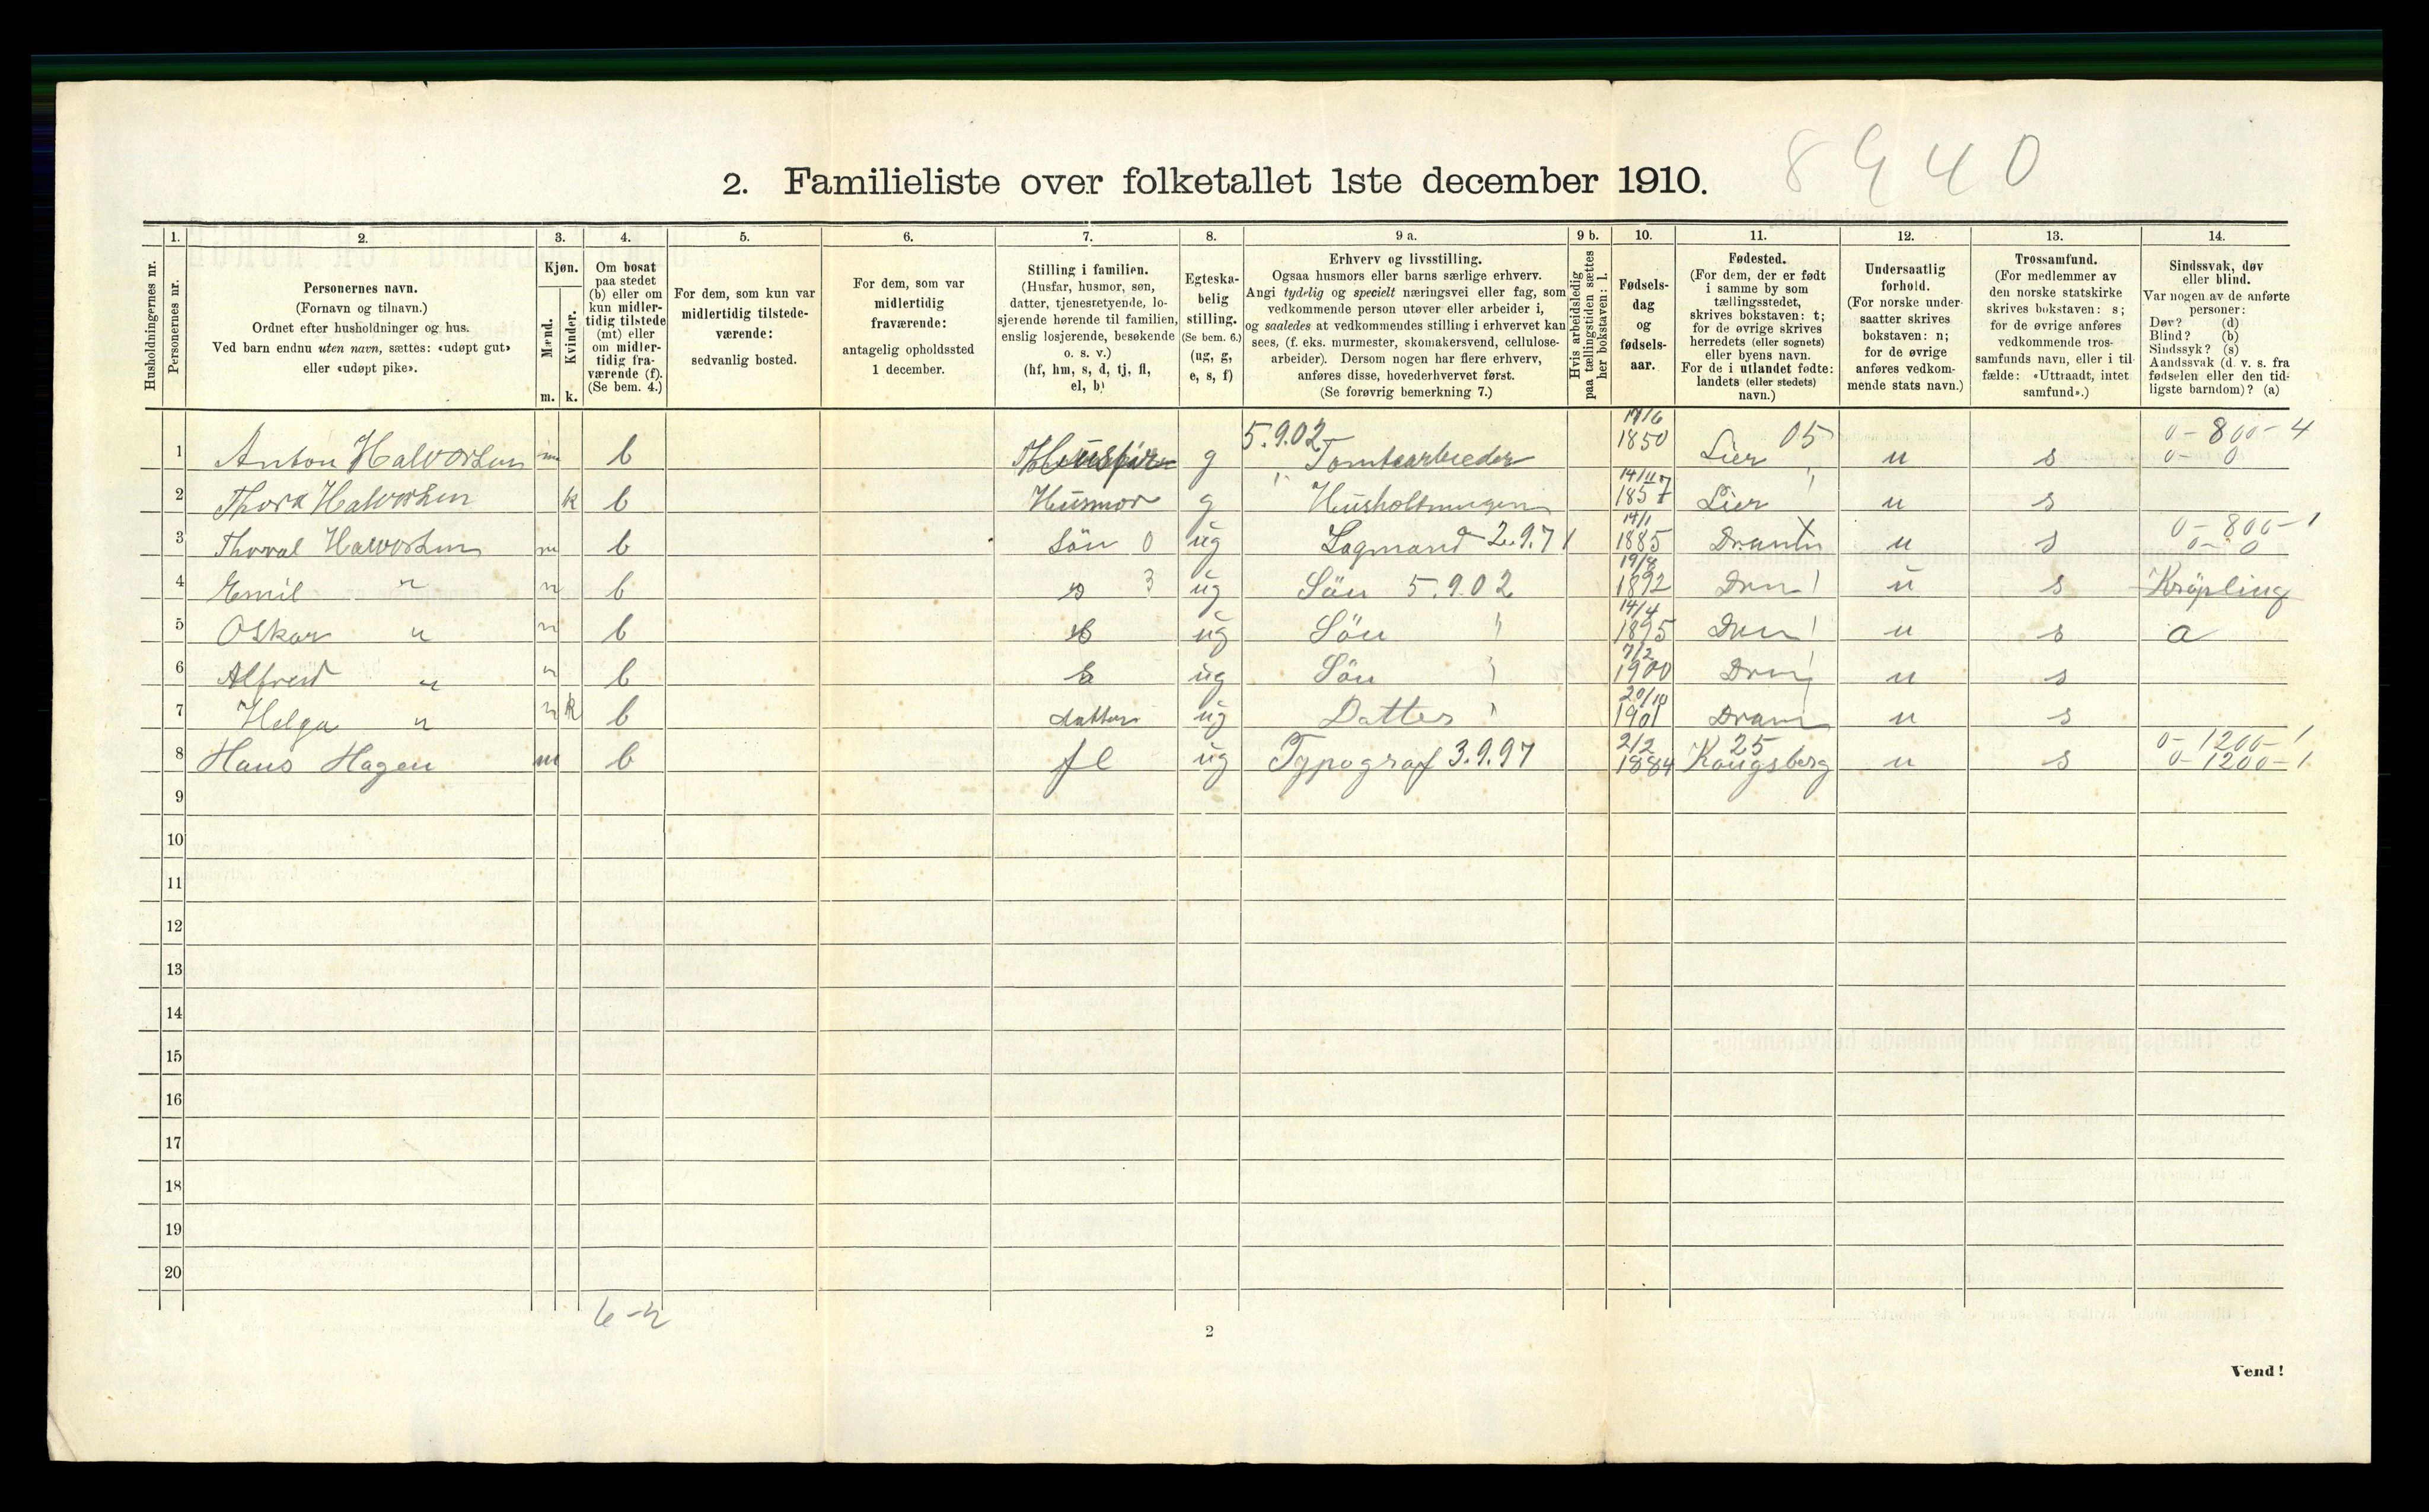 8940
2. Familieliste over folketallet 1ste december 1910.
Husholdningernes nr.
1.
Personernes nr.
2.
Personernes navn.
(Fornavn og tilnavn.)
Ordnet efter husholdninger og hus.
Ved barn endnu uten navn, sættes: «udøpt gut»
eller «udøpt pike».
3.
Kjøn.
Mænd.
Kvinder.
m. k.
4.
Om bosat
paa stedet
(b) eller om
kun midler-
tidig tilstede
(mt) eller
om midler-
tidig fra-
værende (f).
(Se bem. 4.)
5.
For dem, som kun var
midlertidig tilstede-
værende:
sedvanlig bosted.
6.
For dem, som var
midlertidig
fraværende:
antagelig opholdssted
1 december.
7.
Stilling i familien.
(Husfar, husmor, søn,
datter, tjenesretyende, lo-
sjerende hørende til familien,
enslig losjerende, besøkende
o. s. v.)
(hf, hm, s, d, tj, fl,
el, b)
8.
Egteska-
belig
stilling.
(Se bem. 6.)
(ug, g,
e, s, f)
9 a.
Erhverv og livsstilling.
Ogsaa husmors eller barns særlige erhverv.
Angi tydelig og specielt næringsvei eller fag, som
vedkommende person utøver eller arbeider i,
og saaledes at vedkommendes stilling i erhvervet kan
sees, (f. eks. murmester, skomakersvend, cellulose-
arbeider). Dersom nogen har flere erhverv,
anføres disse, hovederhvervet først.
(Se forøvrig bemerkning 7.)
9 b.
Hvis arbeidsledig
paa tællingstiden sættes
her bokstaven: l.
10.
Fødsels-
dag
og
fødsels-
aar.
11.
Fødested.
(For dem, der er født
i samme by som
tællingsstedet,
skrives bokstaven: t;
for de øvrige skrives
herredets (eller sognets)
eller byens navn.
For de i utlandet fødte:
landets (eller stedets)
navn.)
12.
Undersaatlig
forhold.
(For norske under-
saatter skrives
bokstaven: n;
for de øvrige
anføres vedkom-
mende stats navn.)
13.
Trossamfund.
(For medlemmer av
den norske statskirke
skrives bokstaven: s;
for de øvrige anføres
vedkommende tros-
samfunds navn, eller i til-
fælde: «Uttraadt, intet
samfund».)
14.
Sindssvak, døv
eller blind.
Var nogen av de anførte
personer:
Døv? (d)
Blind? (b)
Sindssyk? (s)
Aandssvak (d. v. s. fra
fødselen eller den tid-
ligste barndom)? (a)
1 Anton Halvorsen m b Husfar g 5.9.02 Tomtearbeeder 1850 Lier 05 n s 0-800-4 0-0
2 Thora Halvorsen k b Husmor g Husholtningen 14/11 1857 Lier n s
3 Thorval Halvorsen m b Sön 0 ug Lagmand 2.9.71 14/1 1885 Dramn n s 0-800-1 0-0
4 Emil " b s 3 ug Sön 5.9.02 19/8 1892 Drm n s Kröpling
5 Oskar " b s ug Sön 14/4 1895 Drm n s a
6 Alfred " b s ug Sön 7/2 1900 Drm n s
7 Helga " k b datter ug Datter 20/10 1901 Dram n s
8 Hans Hagen m b fl ug Typograf 3.9.97 2/2 1884 25 Kongsberg n s 0-1200-1 0-1200-1
9
10
11
12
13
14
15
16
17
18
19
20
6-2
2
Vend!